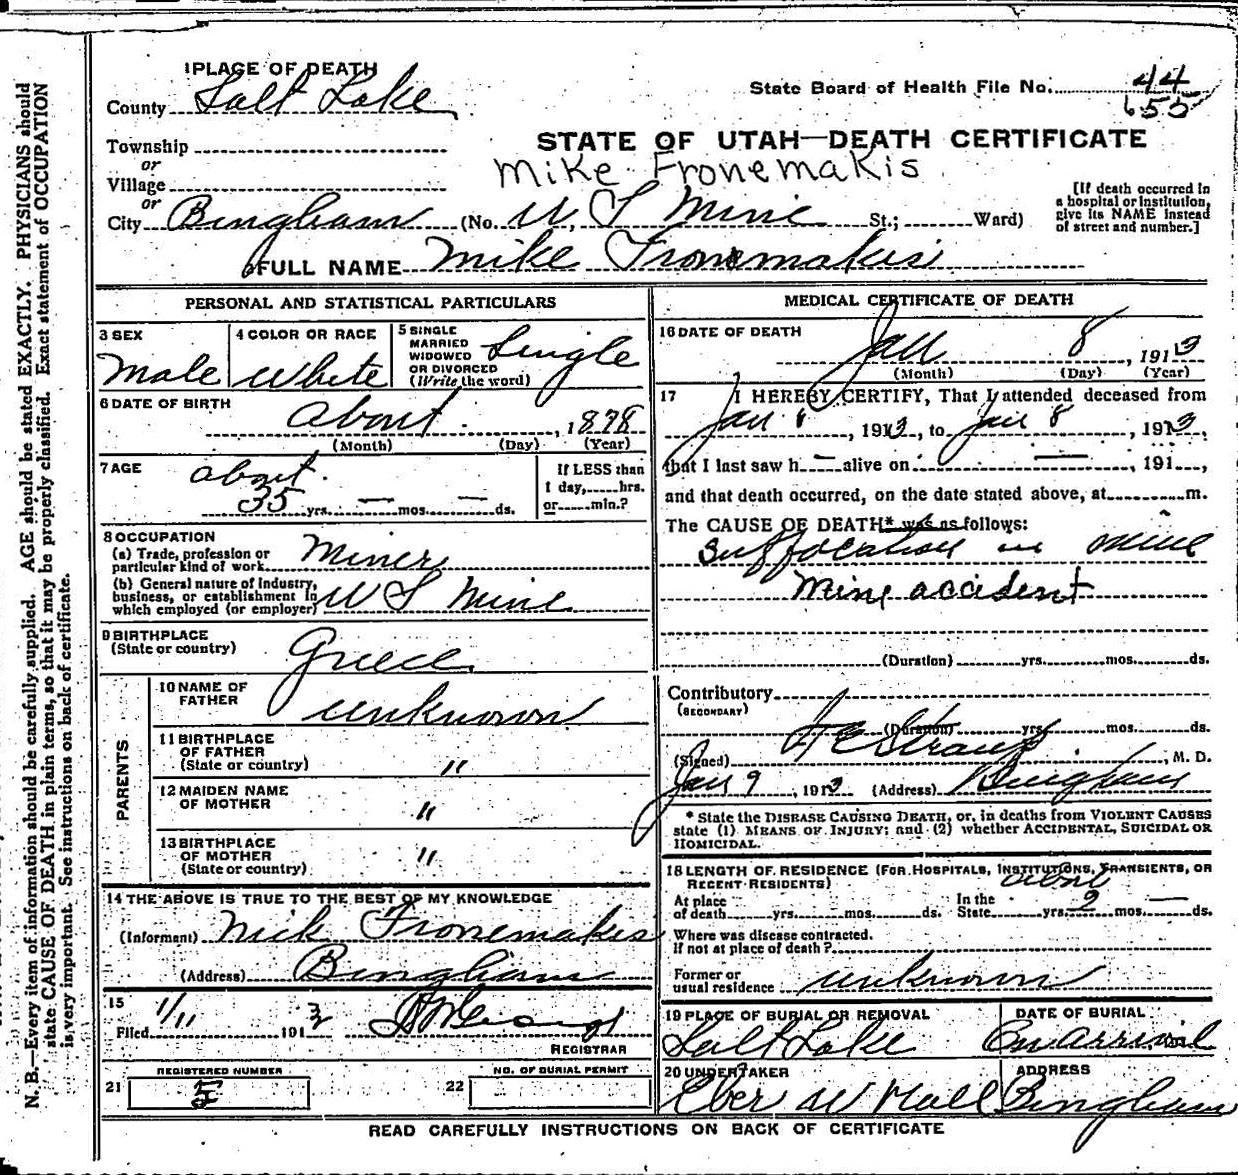 1 PLACE OF DEATH
County Salt Lake
State Board of Health File No. 44
655
Township
or
Village
or
STATE OF UTAH—DEATH CERTIFICATE
Mike Fronemakis
City Bingham (No. U. S Mine St.; Ward)
[If death occurred in a hospital or institution, give its NAME instead of street and number.]
FULL NAME Mike Fronemakis
PERSONAL AND STATISTICAL PARTICULARS
3 SEX
Male
4 COLOR OR RACE
White
5 SINGLE MARRIED WIDOWED OR DIVORCED (Write the word)
Single
6 DATE OF BIRTH
about, 1878
(Month) (Day) (Year)
7 AGE
about
35 yrs. — mos. — ds.
If LESS than 1 day, hrs. or min.?
8 OCCUPATION
(a) Trade, profession or particular kind of work Miner
(b) General nature of industry, business, or establishment in which employed (or employer) U S Mine
9 BIRTHPLACE
(State or country)
Greece
PARENTS
10 NAME OF FATHER
unknown
11 BIRTHPLACE OF FATHER (State or country) "
12 MAIDEN NAME OF MOTHER "
13 BIRTHPLACE OF MOTHER (State or country) "
14 THE ABOVE IS TRUE TO THE BEST OF MY KNOWLEDGE
(Informant) Nick Fronemakis
(Address) Bingham
15
Filed 1/11 1913
REGISTRAR
REGISTERED NUMBER
21 5
NO. OF BURIAL PERMIT
22
MEDICAL CERTIFICATE OF DEATH
16 DATE OF DEATH
Jan 8, 1913
(Month) (Day) (Year)
17 I HEREBY CERTIFY, That I attended deceased from
Jan 8, 1913, to Jan 8, 1913,
that I last saw h — alive on —, 191 ,
and that death occurred, on the date stated above, at m.
The CAUSE OF DEATH* was as follows:
Suffocation in mine
Mine accident
(Duration) yrs. mos. ds.
Contributory
(SECONDARY)
(Duration) yrs. mos. ds.
(Signed) F E Straup, M. D.
Jan 9, 1913 (Address) Bingham
* State the DISEASE CAUSING DEATH, or, in deaths from VIOLENT CAUSES state (1) MEANS OF INJURY; and (2) whether ACCIDENTAL, SUICIDAL OR HOMICIDAL.
18 LENGTH OF RESIDENCE (FOR HOSPITALS, INSTITUTIONS, TRANSIENTS, OR RECENT RESIDENTS)
about
At place of death yrs. mos. ds. In the State yrs. 9 mos. — ds.
Where was disease contracted.
If not at place of death?
Former or usual residence unknown
19 PLACE OF BURIAL OR REMOVAL
Salt Lake
DATE OF BURIAL
On arrival
20 UNDERTAKER
Eber W Hall
ADDRESS
Bingham
READ CAREFULLY INSTRUCTIONS ON BACK OF CERTIFICATE
N. B.—Every item of information should be carefully supplied. AGE should be stated EXACTLY. PHYSICIANS should
state CAUSE OF DEATH in plain terms, so that it may be properly classified. Exact statement of OCCUPATION
is very important. See instructions on back of certificate.